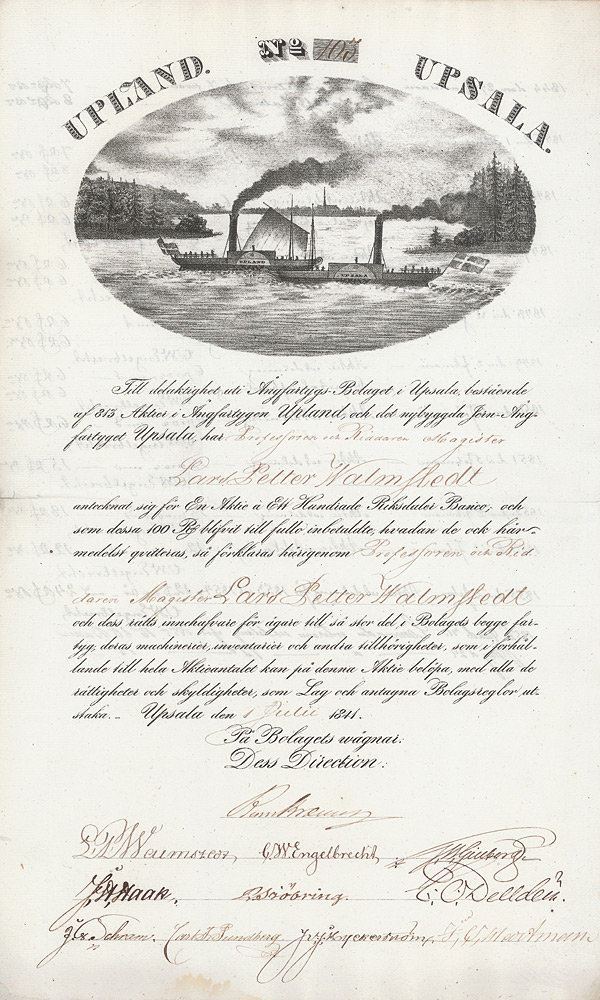 UPLAND. No 105 UPSALA.
UPLAND UPSALA
Till delaktighet uti Ångfartygs-Bolaget i Upsala, bestående
af 813 Aktier i Ångfartygen Upland, och det nybyggda Jern-Ång-
fartyget Upsala, har Professoren och Riddaren Magister
Lars Petter Walmstedt
antecknat sig för En Aktie à Ett Hundrade Riksdaler Banco; och
som dessa 100 Rdr blifvit till fullo inbetaldte, hvadan de ock här-
medelst qvitteras, så förklaras härigenom Professoren och Rid
daren Magister Lars Petter Walmstedt
och dess rätts innehafvare för ägare till så stor del i Bolagets begge far-
tyg, deras machinerier, inventarier och andra tillhörigheter, som i förhål-
lande till hela Aktieantalet kan på denna Aktie belöpa, med alla de
rättigheter och skyldigheter, som Lag och antagna Bolagsreglor ut-
staka. Upsala den 1 Julii 1841.
På Bolagets wägnar:
Dess Direction:
LPWalmstedt CWEngelbrecht
Haak. Sjöbring. C. O. Delldén.
Schram. Carl Sundberg